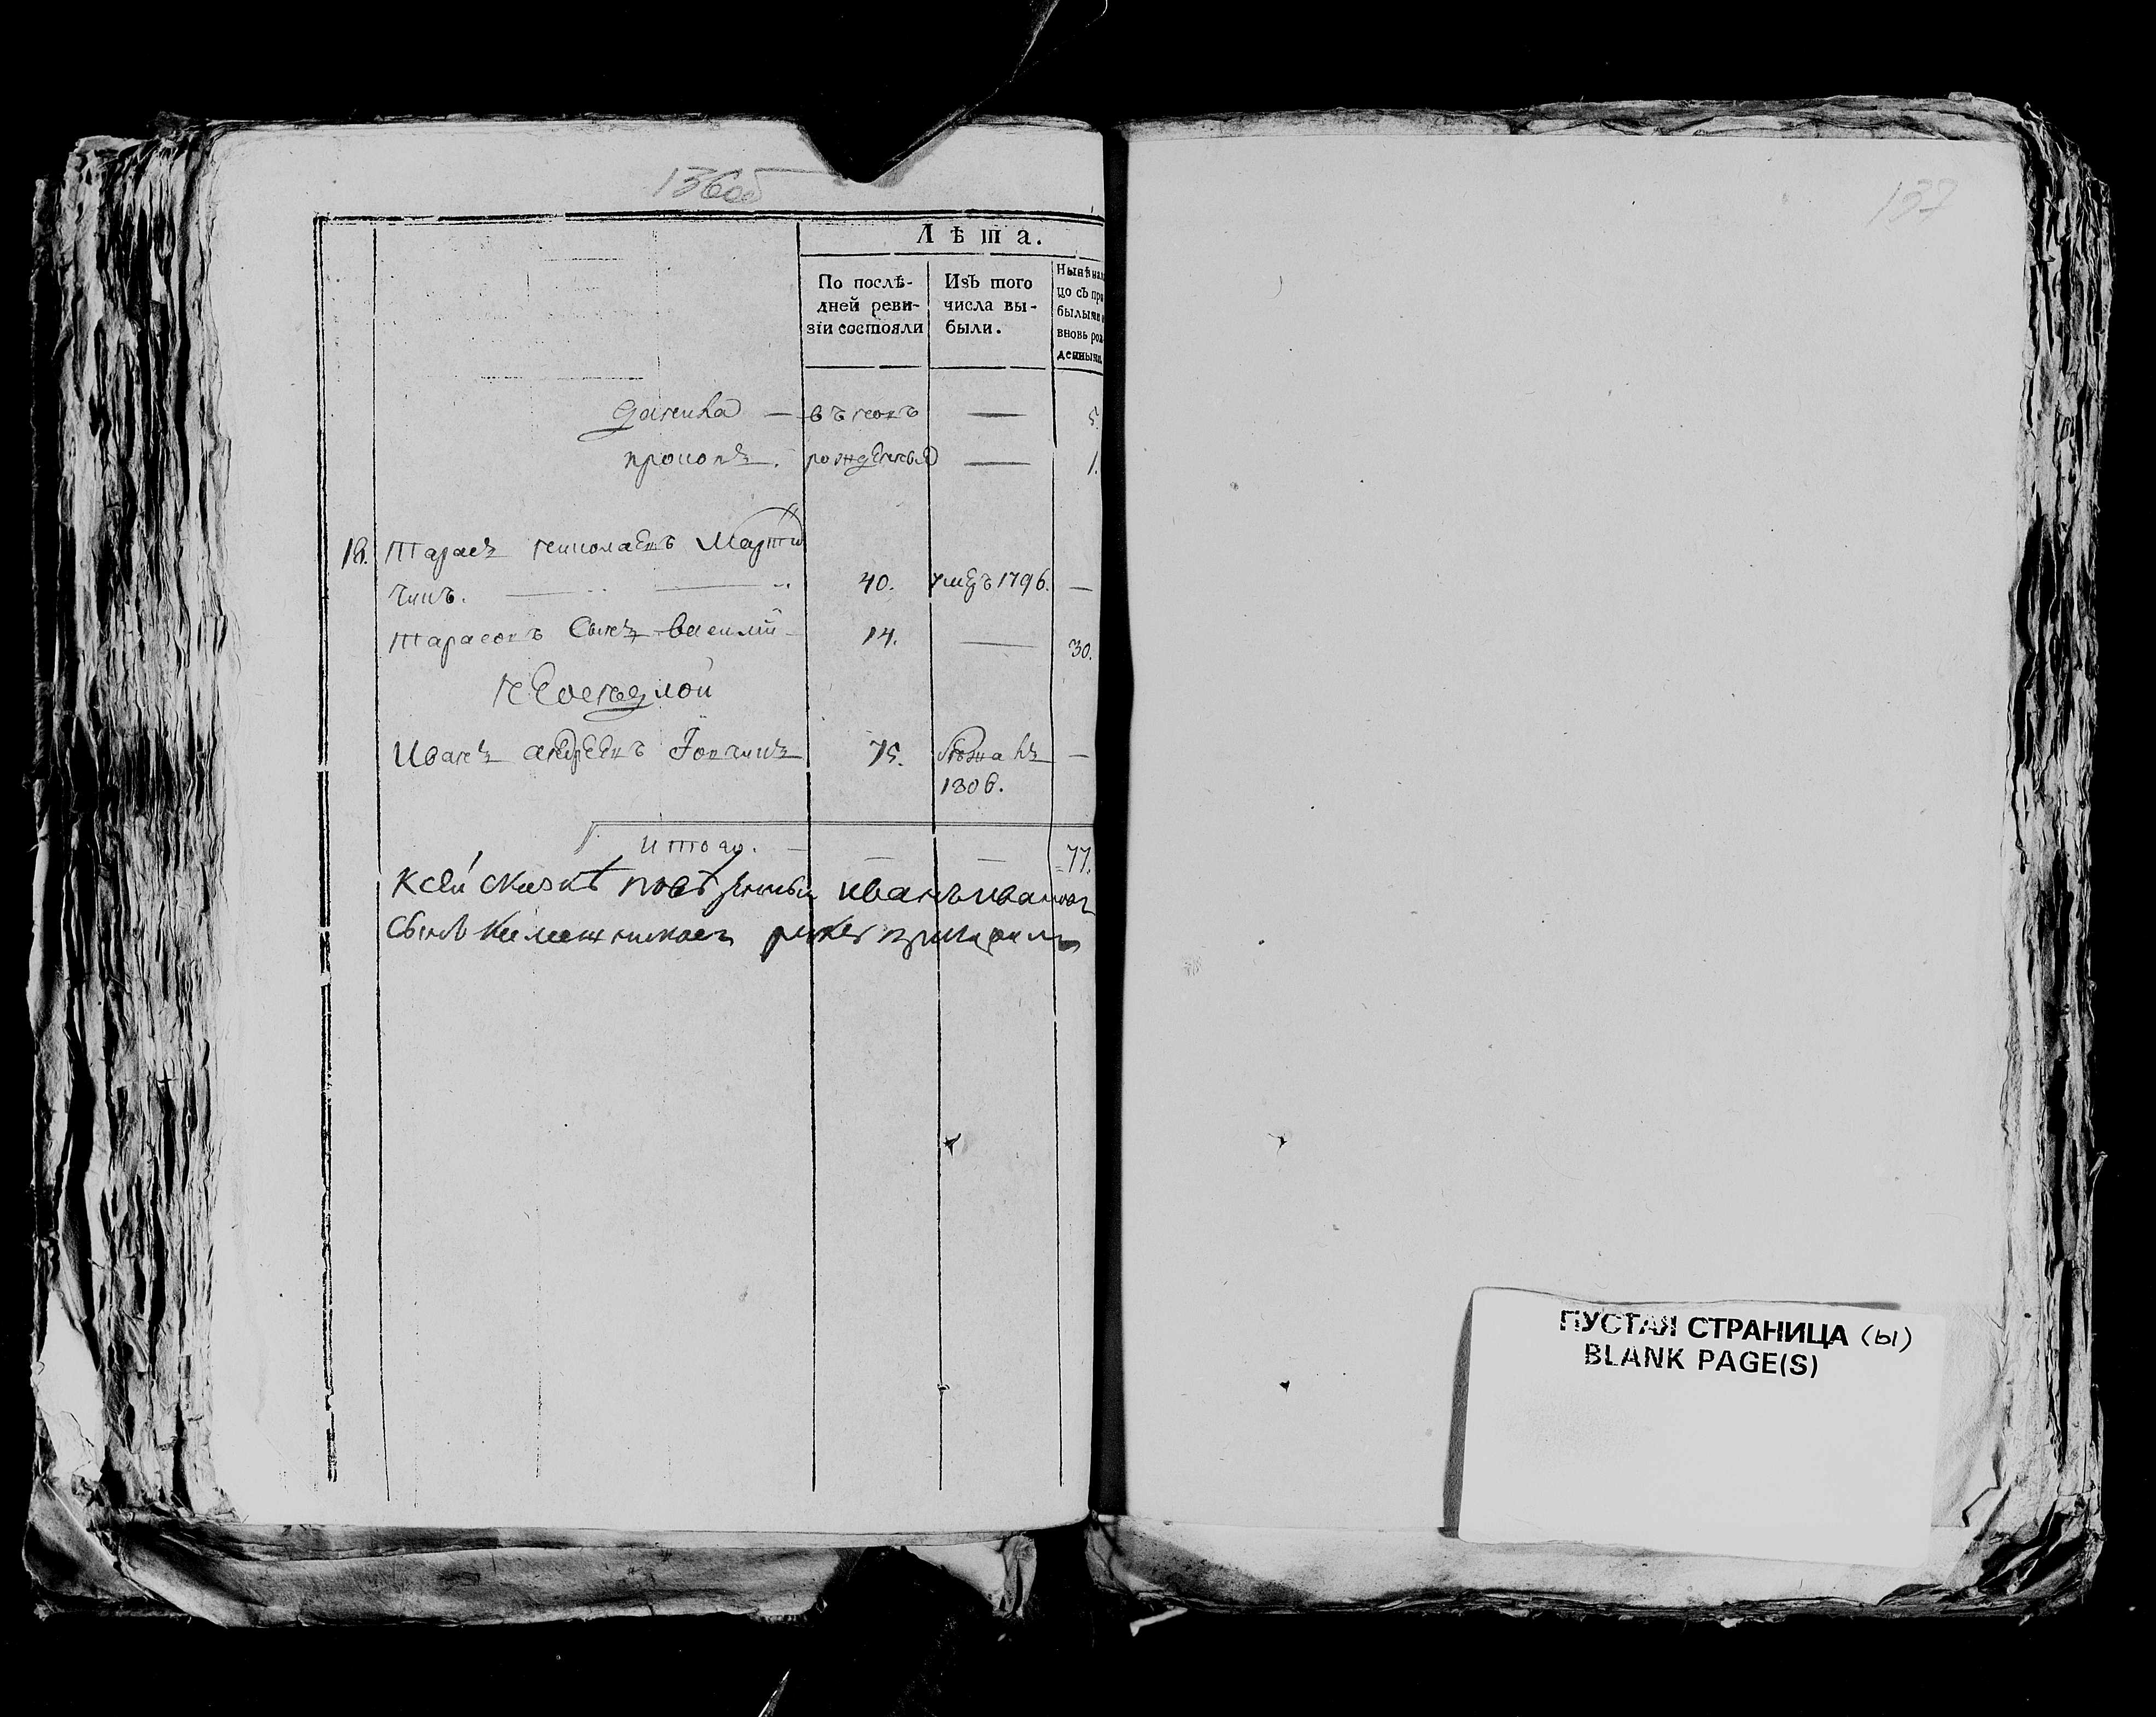 136об
Лѣта.
По послѣ-
дней реви-
зіи состояли
Изъ того
числа вы-
были.
Нынѣ на
цо съ при
былыми и
вновь рож
денными.
данила — вънокъ — 5.
прокопъ. рожденныя — 1.
18. Тарасъ николаевъ Марти
чинъ. — 40. умеръ 1796. —
Тарасовъ Сынъ василій 14. — 30.
Иванъ андреевъ 75. —
1806.
итого. — — 77.
Ксей сказкѣ повѣренный иванъ иванов
Сынъ руку приложилъ
137
ПУСТАЯ СТРАНИЦА (ы)
BLANK PAGE(S)